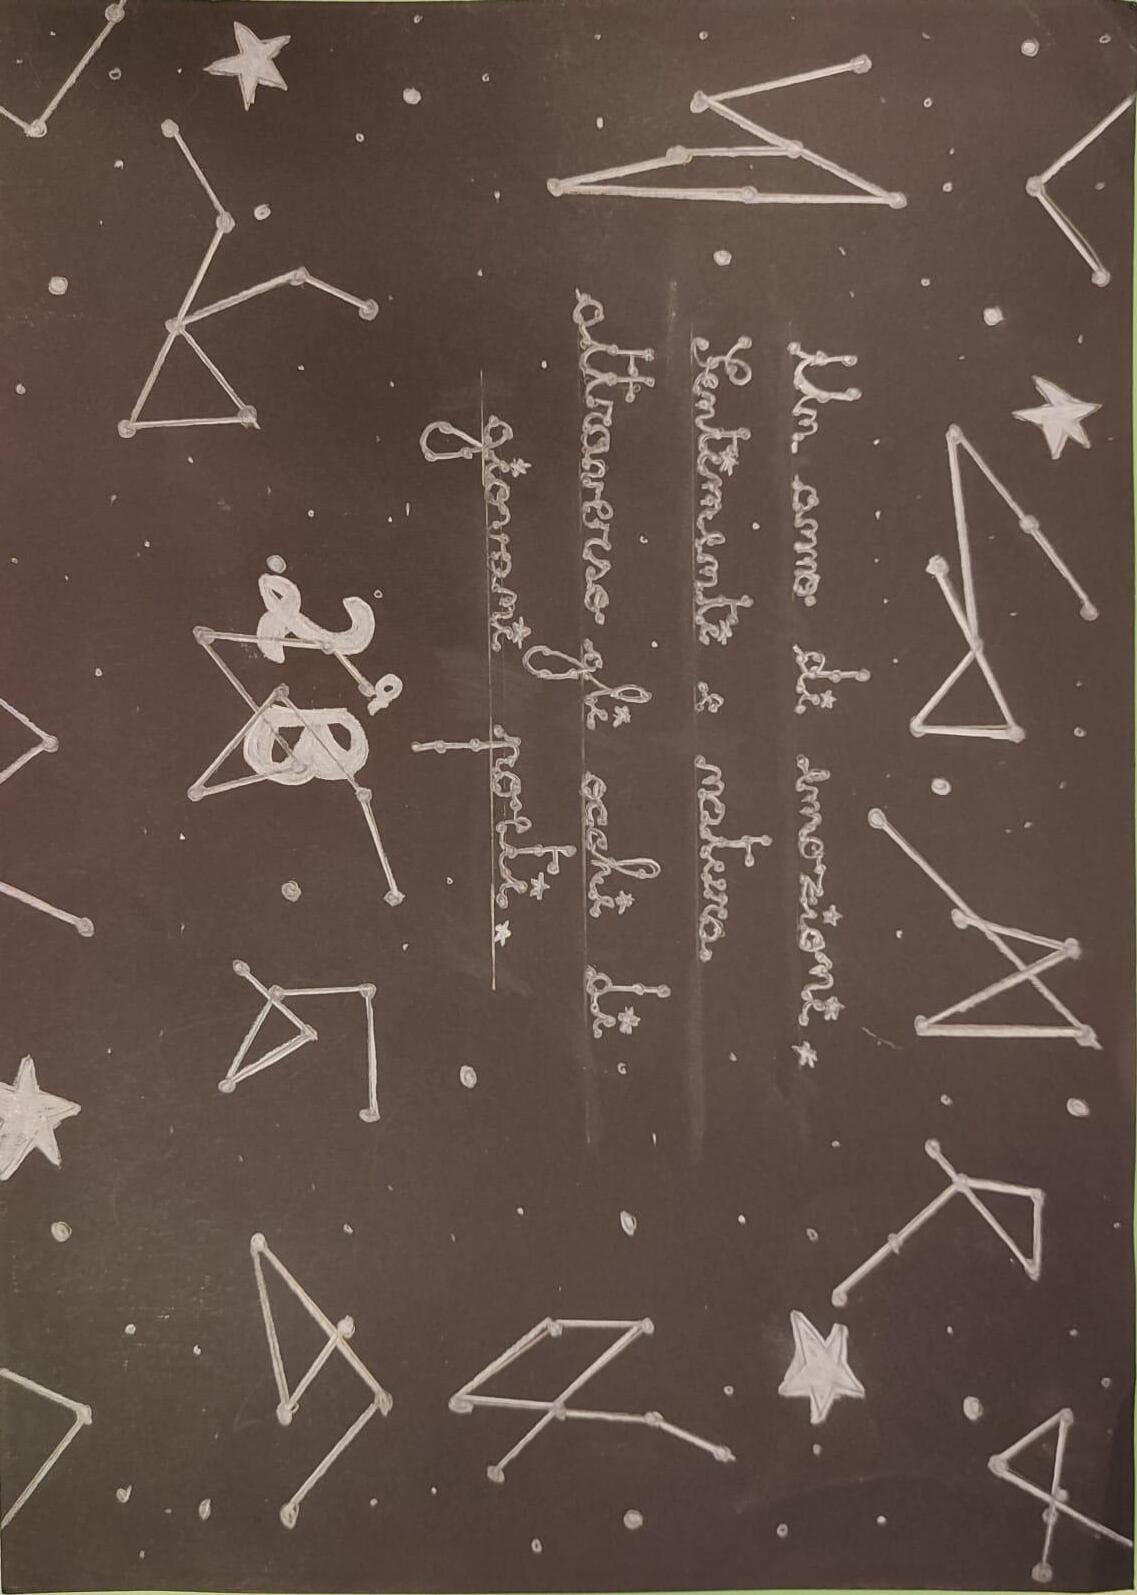 Un anno di emozioni
Sentimenti e natura
attraverso gli occhi di
giorni e notti
2°B